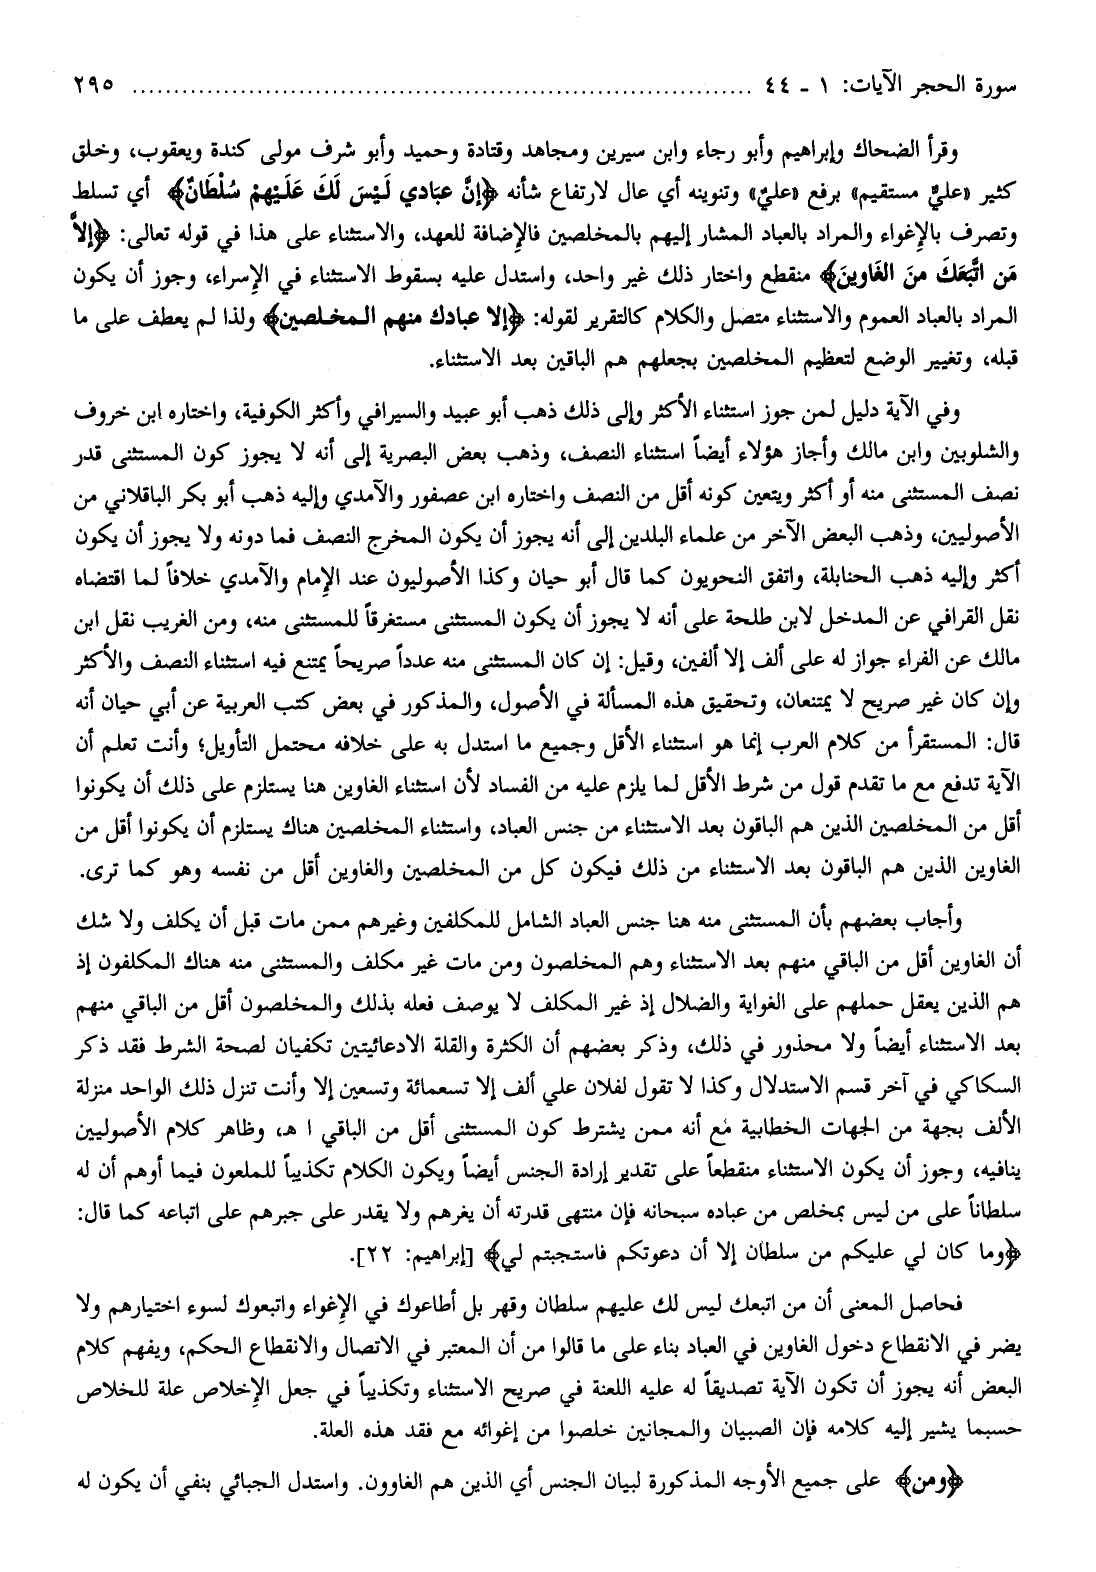 سورة الحجر الآيات: ١ ـ ٤٤ ........................................................................ ٢٩٥
وقرأ الضحاك وإبراهيم وأبو رجاء وابن سيرين ومجاهد وقتادة وحميد وأبو شرف مولى كندة ويعقوب، وخلق
كثير «عليٌّ مستقيم» برفع «عليٌ» وتنوينه أي عال لارتفاع شأنه ﴿إنَّ عبَادي لَيْسَ لَكَ عَلَيْهمْ سُلْطَانٌ﴾ أي تسلط
وتصرف بالإغواء والمراد بالعباد المشار إليهم بالمخلصين فالإضافة للعهد، والاستثناء على هذا في قوله تعالى: ﴿إلاَّ
مَن اتَّبَعَكَ منَ الغَاوينَ﴾ منقطع واختار ذلك غير واحد، واستدل عليه بسقوط الاستثناء في الإسراء، وجوز أن يكون
المراد بالعباد العموم والاستثناء متصل والكلام كالتقرير لقوله: ﴿إلا عبادك منهم المخلصين﴾ ولذا لم يعطف على ما
قبله، وتغيير الوضع لتعظيم المخلصين بجعلهم هم الباقين بعد الاستثناء.
وفي الآية دليل لمن جوز استثناء الأكثر وإلى ذلك ذهب أبو عبيد والسيرافي وأكثر الكوفية، واختاره ابن خروف
والشلوبين وابن مالك وأجاز هؤلاء أيضاً استثناء النصف، وذهب بعض البصرية إلى أنه لا يجوز كون المستثنى قدر
نصف المستثنى منه أو أكثر ويتعين كونه أقل من النصف واختاره ابن عصفور والآمدي وإليه ذهب أبو بكر الباقلاني من
الأصوليين، وذهب البعض الآخر من علماء البلدين إلى أنه يجوز أن يكون المخرج النصف فما دونه ولا يجوز أن يكون
أكثر وإليه ذهب الحنابلة، واتفق النحويون كما قال أبو حيان وكذا الأصوليون عند الإمام والآمدي خلافاً لما اقتضاه
نقل القرافي عن المدخل لابن طلحة على أنه لا يجوز أن يكون المستثنى مستغرقاً للمستثنى منه، ومن الغريب نقل ابن
مالك عن الفراء جواز له على ألف إلا ألفين، وقيل: إن كان المستثنى منه عدداً صريحاً يمتنع فيه استثناء النصف والأكثر
وإن كان غير صريح لا يمتنعان، وتحقيق هذه المسألة في الأصول، والمذكور في بعض كتب العربية عن أبي حيان أنه
قال: المستقرأ من كلام العرب إنما هو استثناء الأقل وجميع ما استدل به على خلافه محتمل التأويل؛ وأنت تعلم أن
الآية تدفع مع ما تقدم قول من شرط الأقل لما يلزم عليه من الفساد لأن استثناء الغاوين هنا يستلزم على ذلك أن يكونوا
أقل من المخلصين الذين هم الباقون بعد الاستثناء من جنس العباد، واستثناء المخلصين هناك يستلزم أن يكونوا أقل من
الغاوين الذين هم الباقون بعد الاستثناء من ذلك فيكون كل من المخلصين والغاوين أقل من نفسه وهو كما ترى.
وأجاب بعضهم بأن المستثنى منه هنا جنس العباد الشامل للمكلفين وغيرهم ممن مات قبل أن يكلف ولا شك
أن الغاوين أقل من الباقي منهم بعد الاستثناء وهم المخلصون ومن مات غير مكلف والمستثنى منه هناك المكلفون إذ
هم الذين يعقل حملهم على الغواية والضلال إذ غير المكلف لا يوصف فعله بذلك والمخلصون أقل من الباقي منهم
بعد الاستثناء أيضاً ولا محذور في ذلك، وذكر بعضهم أن الكثرة والقلة الادعائيتين تكفيان لصحة الشرط فقد ذكر
السكاكي في آخر قسم الاستدلال وكذا لا تقول لفلان علي ألف إلا تسعمائة وتسعين إلا وأنت تنزل ذلك الواحد منزلة
الألف بجهة من الجهات الخطابية مع أنه ممن يشترط كون المستثنى أقل من الباقي ا هـ، وظاهر كلام الأصوليين
ينافيه، وجوز أن يكون الاستثناء منقطعاً على تقدير إرادة الجنس أيضاً ويكون الكلام تكذيباً للملعون فيما أوهم أن له
سلطاناً على من ليس بمخلص من عباده سبحانه فإن منتهى قدرته أن يغرهم ولا يقدر على جبرهم على اتباعه كما قال:
﴿وما كان لي عليكم من سلطان إلا أن دعوتكم فاستجبتم لي﴾ [إبراهيم: ٢٢].
فحاصل المعنى أن من اتبعك ليس لك عليهم سلطان وقهر بل أطاعوك في الإغواء واتبعوك لسوء اختيارهم ولا
يضر في الانقطاع دخول الغاوين في العباد بناء على ما قالوا من أن المعتبر في الاتصال والانقطاع الحكم، ويفهم كلام
البعض أنه يجوز أن تكون الآية تصديقاً له عليه اللعنة في صريح الاستثناء وتكذيباً في جعل الإخلاص علة للخلاص
حسبما يشير إليه كلامه فإن الصبيان والمجانين خلصوا من إغوائه مع فقد هذه العلة.
﴿ومن﴾ على جميع الأوجه المذكورة لبيان الجنس أي الذين هم الغاوون. واستدل الجبائي بنفي أن يكون له